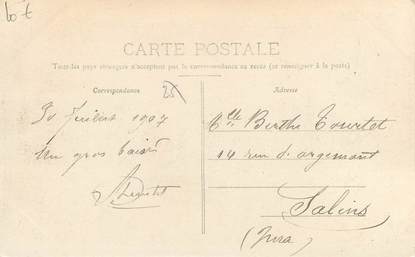 60 €
CARTE POSTALE
Tous les pays étrangers n'acceptent pas la correspondance au recto (se renseigner à la poste)
Correspondance
Adresse
25
30 Juillet 1907
Un gros baiser
Mlle Berthe Tourtet
14 rue d'argemont
Salins
(Jura)